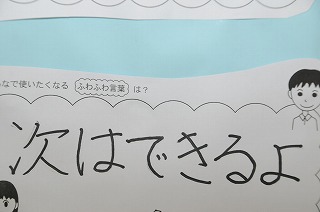 なで使いたくなる ふわふわ言葉 は？
次はできるよ